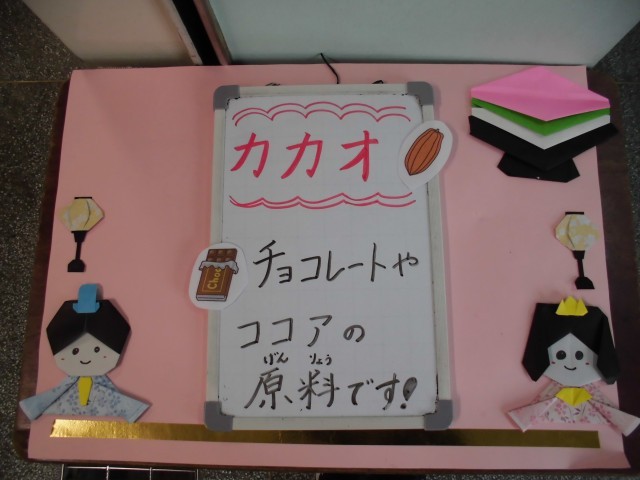 カカオ
チョコレートや
Choc
ココアの
げんりょう
原料です!